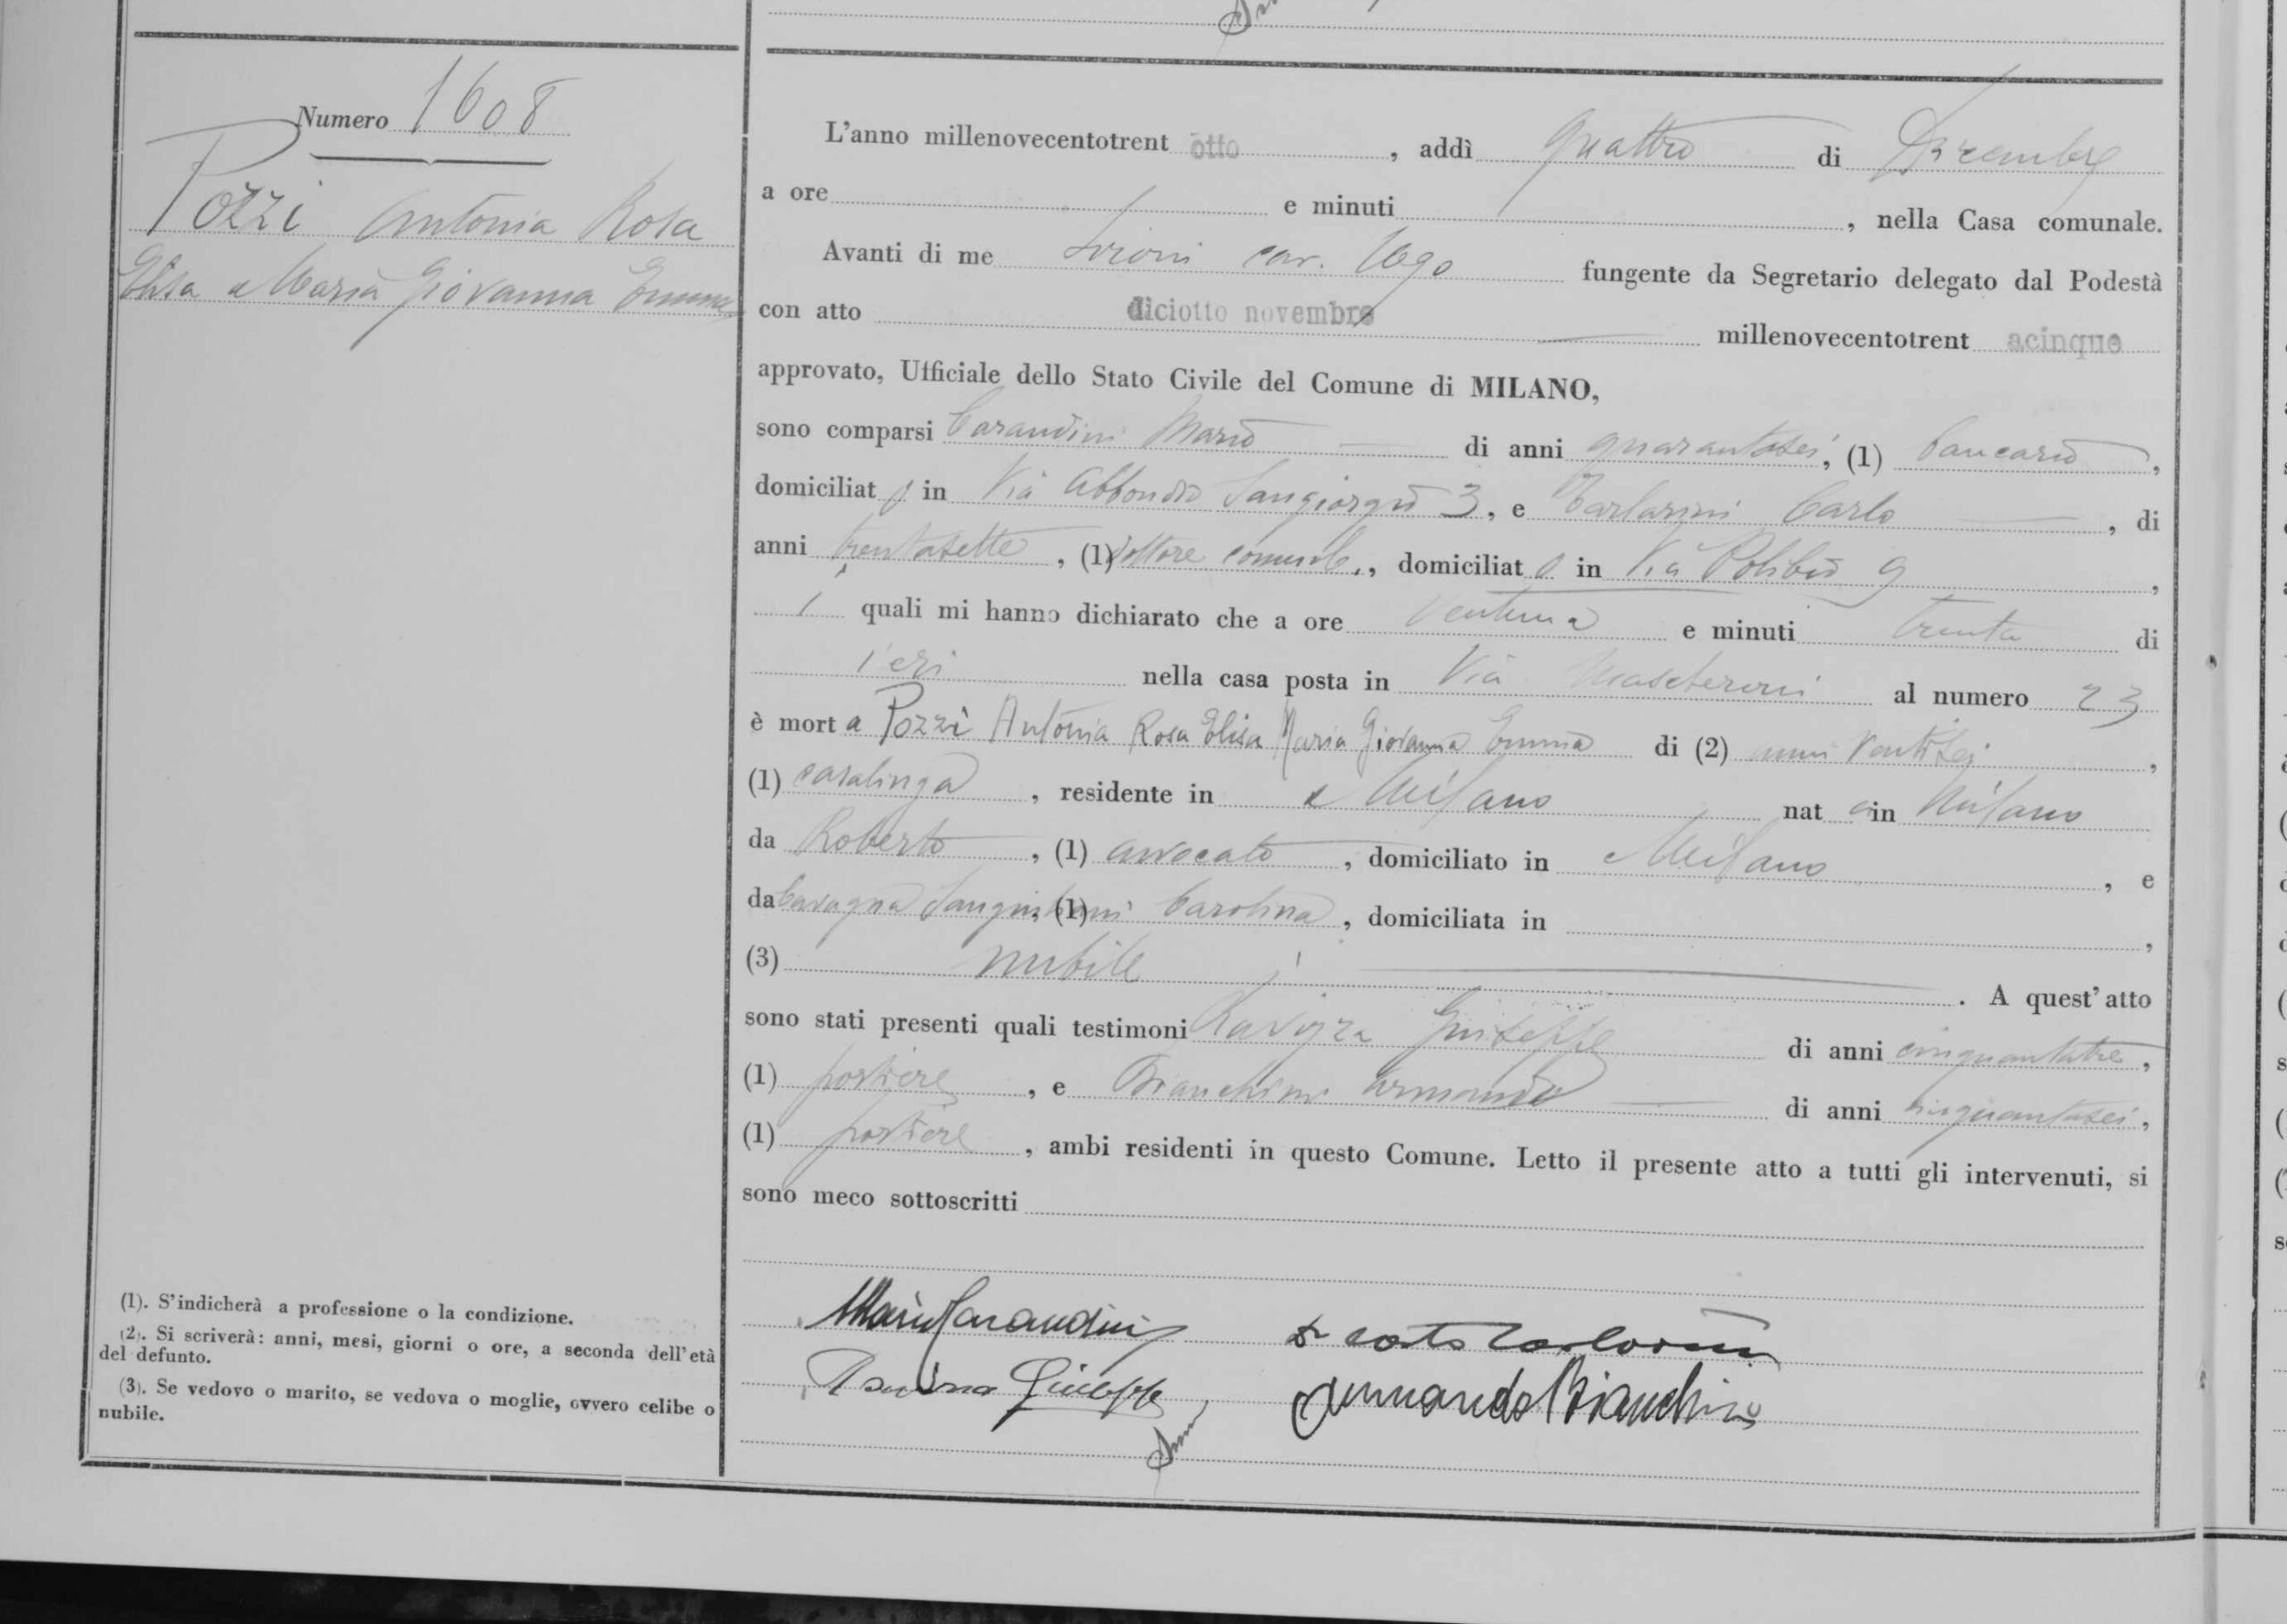 Numero 1608
Pozzi Antonia Rosa
Elisa Maria Giovanna Emma
L'anno millenovecentotrent otto, addì quattro di Dicembre
a ore e minuti, nella Casa comunale.
Avanti di me cav. Ugo fungente da Segretario delegato dal Podestà
con atto diciotto novembre millenovecentotrent acinque
approvato, Ufficiale dello Stato Civile del Comune di MILANO,
sono comparsi Carandini Mario di anni quarantasei, (1) bancario,
domiciliat i in Via Abbondio Sangiorgio 3, e Carlo, di
anni trentasette, (1) dottore, domiciliat in Via Polibio 9,
i quali mi hanno dichiarato che a ore ventuna e minuti trenta di
ieri nella casa posta in Via Mascheroni al numero 23
è mort a Pozzi Antonia Rosa Elisa Maria Giovanna Emma di (2) anni ventisei,
(1) casalinga, residente in Milano nat a in Milano
da Roberto, (1) avvocato, domiciliato in Milano, e
da Cavagna Sangiuliani (1) Carolina, domiciliata in,
(3) nubile. A quest'atto
sono stati presenti quali testimoni Ravizza Giuseppe di anni cinquantatre,
(1) portiere, e Bianchini Armando di anni cinquantasei,
(1) portiere, ambi residenti in questo Comune. Letto il presente atto a tutti gli intervenuti, si
sono meco sottoscritti
Mario Carandini
Giuseppe Armando Bianchini
(1). S'indicherà a professione o la condizione.
(2). Si scriverà: anni, mesi, giorni o ore, a seconda dell'età
del defunto.
(3). Se vedovo o marito, se vedova o moglie, ovvero celibe o
nubile.